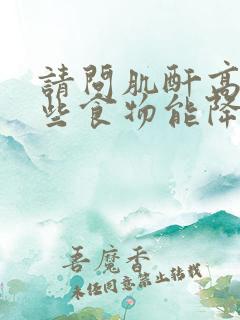 請問肌酐高
些食物能降
吾魔香
未经同意禁止转载